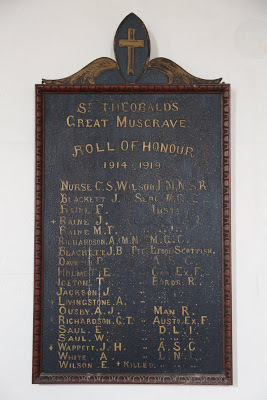 St THEOBALD'S
GREAT MUSGRAVE.
ROLL OF HONOUR
1914 - 1919
NURSE C.S. WILSON
BLACKETT J. SERG. M.G.C.
RAINE F.
+ RAINE J. " "
RAINE M.T. " "
RICHARDSON. A. M.M. M.G.C.
BLACKETT J.B. PTE SCOTTISH.
HOLMES E. CAN. EX. F.
IDETON. T. BORDR. R.
JACKSON J. " "
+ LIVINGSTONE. A. " "
OUSBY. A. J. MAN R.
+ RICHARDSON. G.T. AUSTD. EX. F.
SAUL E. D.L.I.
SAUL W. "
+ WAPPETT. J. H. A.S.C.
WHITE A.
WILSON E. + KILLED. " "